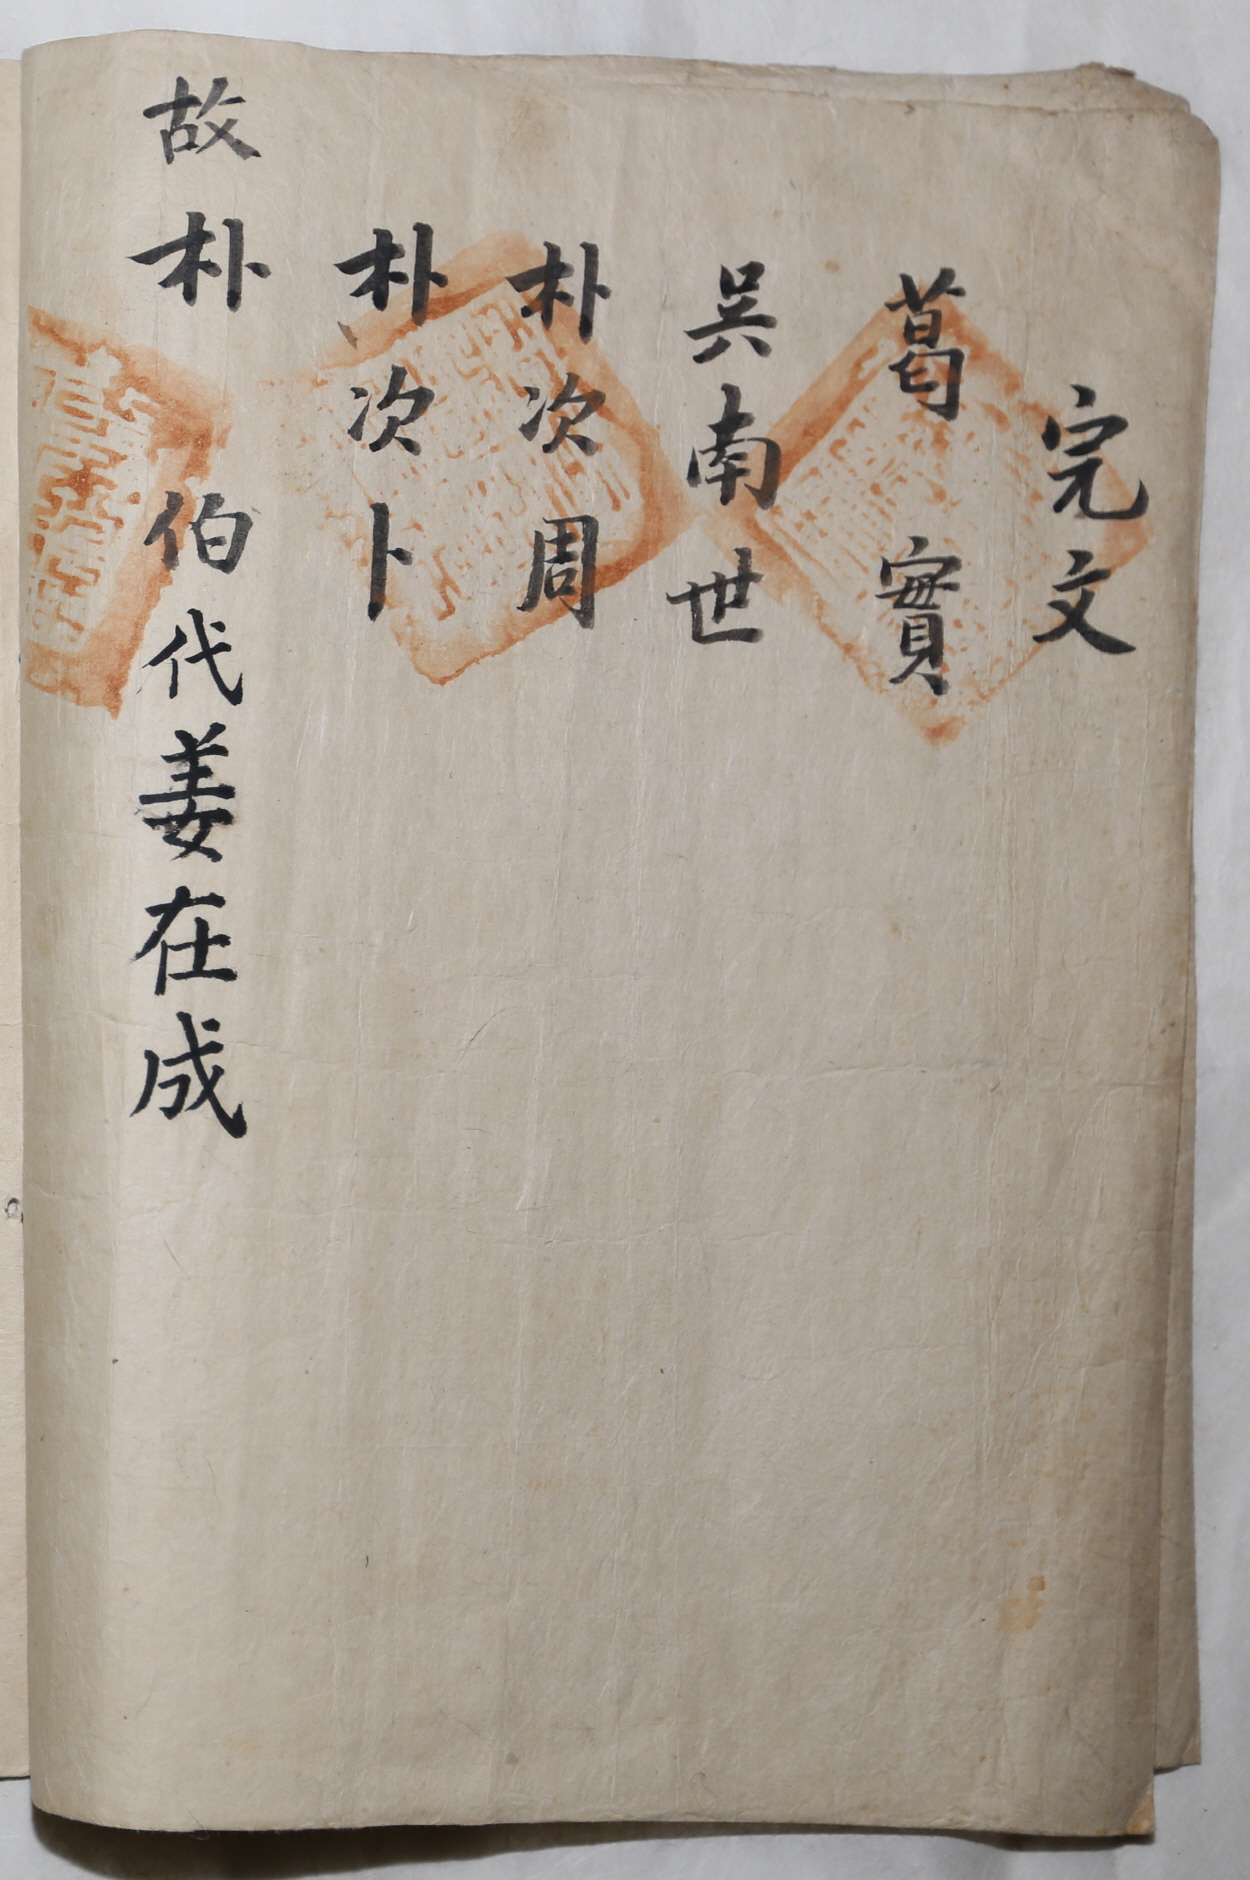 完文
葛實
吳南世
朴次周
朴次卜
故朴伯代姜在成